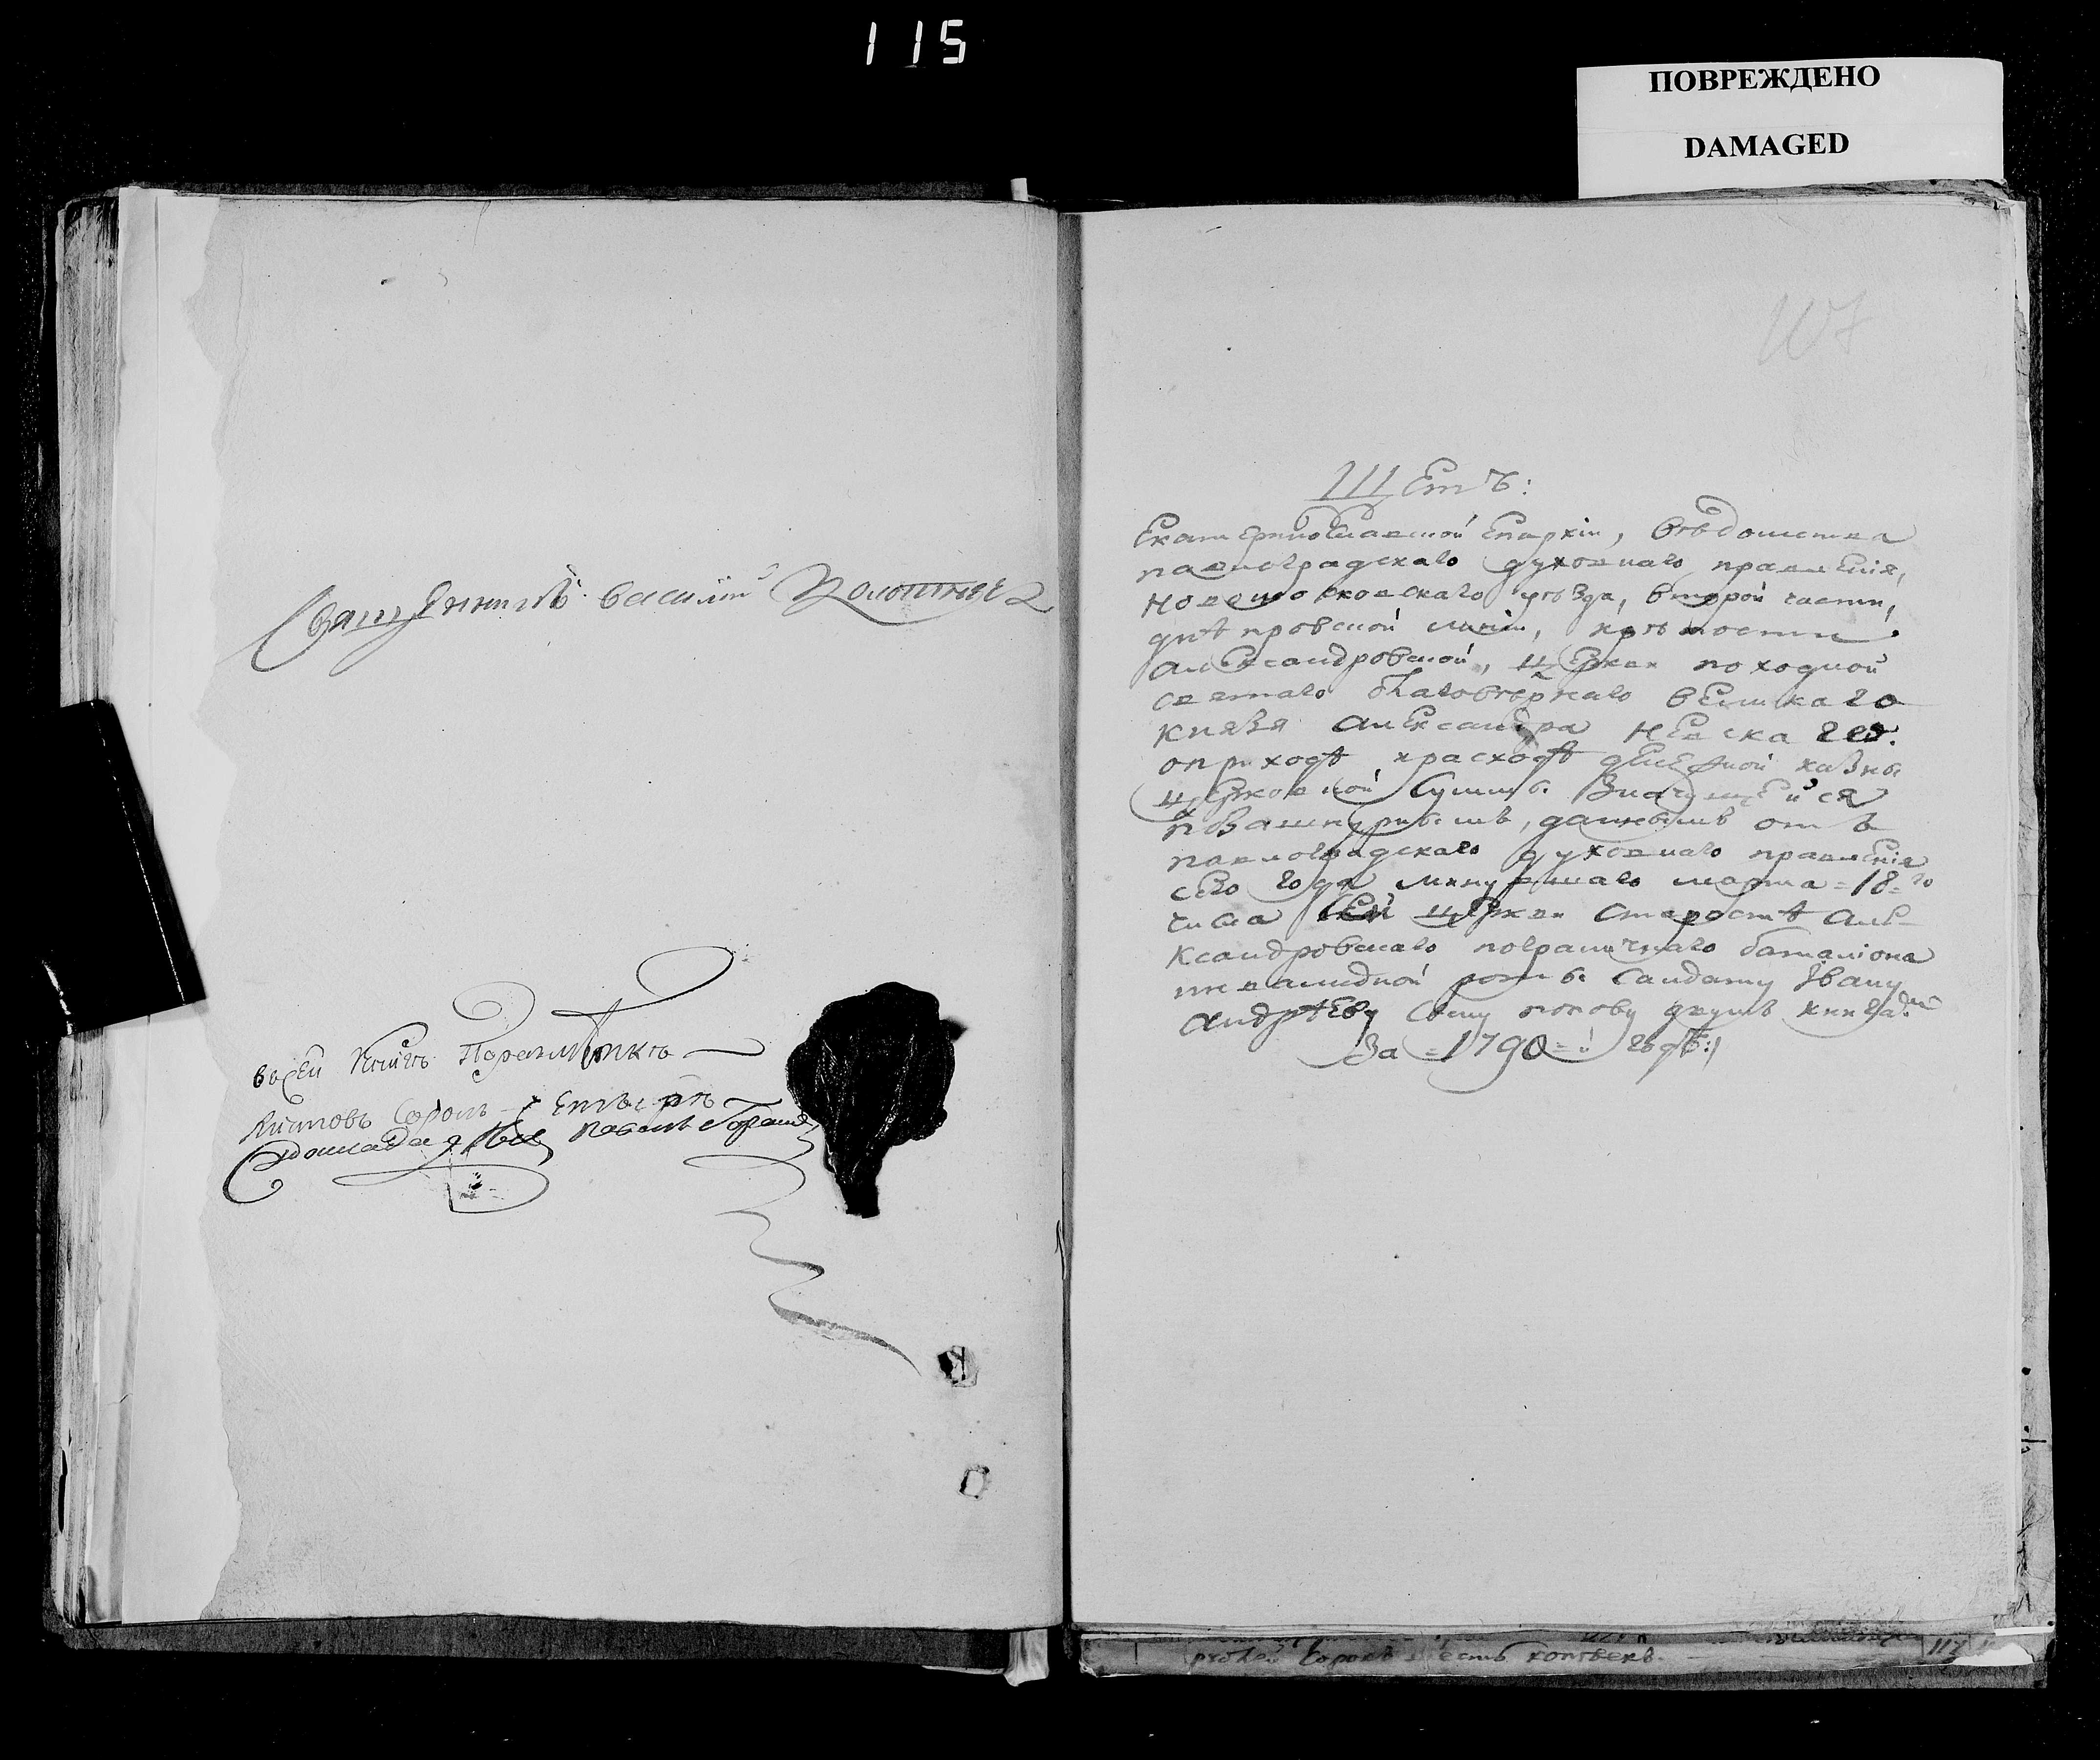 115
ПОВРЕЖДЕНО
DAMAGED
107
Священникъ василий
всей книгѣ
листовъ сорокъ
Павелъ
Щетъ:
Екатеринославской Епархіи, вѣдомства
павлоградскаго духовнаго правленія,
новомосковскаго уѣзда, второй части,
днѣпровской линіи, крѣпости
александровской, церкви походной
святаго благовѣрнаго великаго
князя александра невскаго.
оприходѣ ирасходѣ денежной казны
церковной суммы. значущейся
пошнурнымъ, даннымъ отъ
павлоградскаго духовнаго правленія
сего года минувшаго марта =18=го
числа сей церкви старостѣ але-
ксандровскаго пограничнаго баталіона
инвалидной роты салдату Ивану
андрѣеву сыну попову двумъ книгамъ
За =1790=й годъ:/
сорокъ шесть копѣекъ.
117